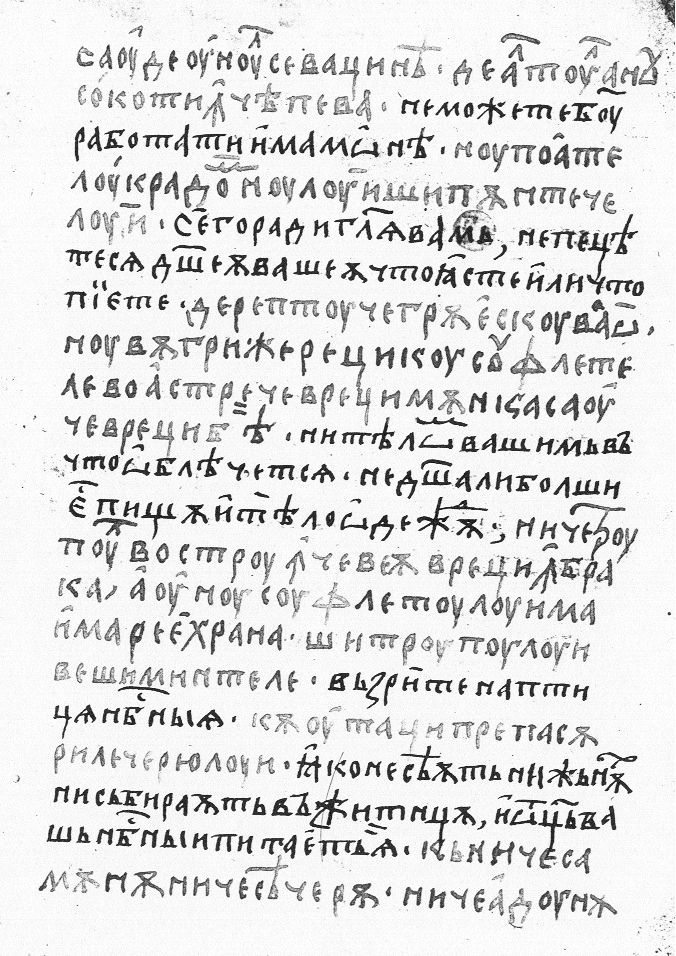 саоу де оуноул се ва цинѣ · де алтоул ануⷨ
сокотилчѣпева · неможете бо҃у
работати и҆ мамѡнѣ · ноу поате
лоукра дⷨоноулоуишипѫнтече
лоуй · сего ради гл҃ѧ вамь, непецѣ
тесѧ дш҃еѫ вашеѫ что ꙗсте или что
пїете · дерептоу чегрѫескоу ваѡ,
ноу вѫгрижерецикоусоуфлете
лево астречеврецимѫнѕасаоу
чеврецибѣ · нитѣлѡⷨ вашимьвъ
чтоѡблѣчетсѧ · недш҃алиболши
есть пищѫ и тѣло ѡдежѫ ; ничероу
поулвостроул чевеѫврецилбра
ка, аоуноусоуфлетоулоуима
имареехрана · шитроупоулоуи
вешиминтеле · възрите на пти
цѧ нб҃ныѧ · кѫоутаципрепасѫ
рилечерюлоуи · ꙗко не сѣѫть ни жьнѫ
ни събираѫть въ житницѫ, и ѡц҃ъ ва
шь нб҃ныи питаеть ѧ · къничеса
мѫнѫничесѣчерѫ · ничеадоунѫ